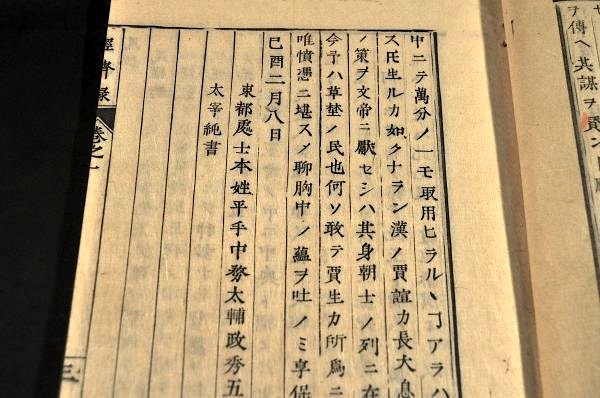 ヲ傳ヘ其謀ヲ
中ニテ萬分ノ一モ取用ヒラルヽヿアラハ
ス氏生ルカ如クナラン漢ノ賈誼カ長大息
ノ策ヲ文帝ニ獻セシハ其身朝士ノ列ニ在
今予ハ草埜ノ民也何ソ敢テ賈生カ所爲ニ
唯憤憑ニ堪スメ聊胸中ノ蘊ヲ吐ノミ享保
己酉二月八日
東都處士本姓平手中務太輔政秀五
太宰純書
經濟録 卷之一 三